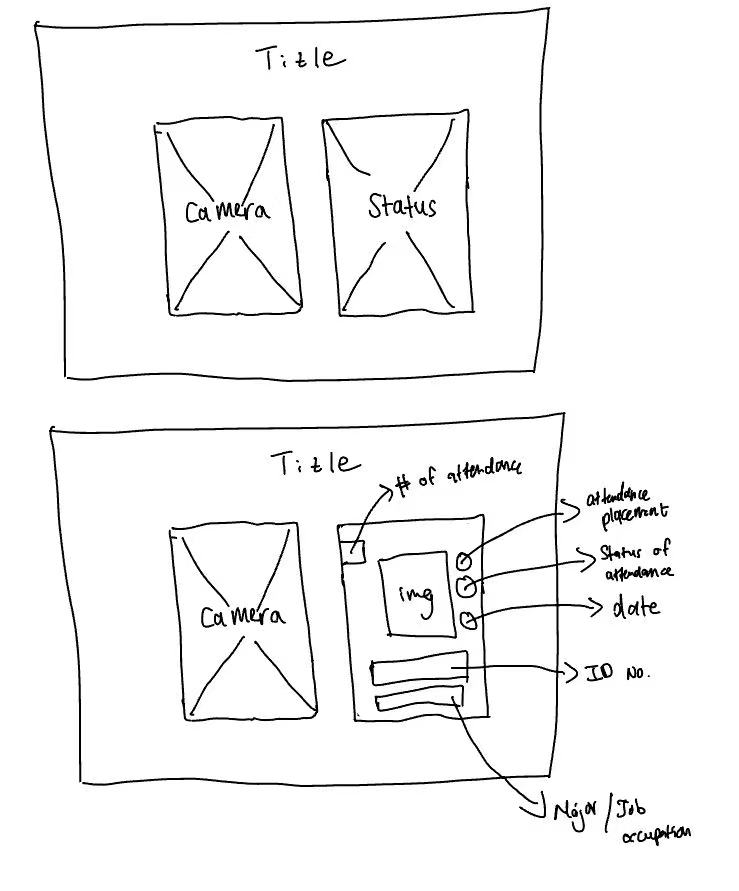 Title
Camera
Status
Title
# of attendance
attendance
placement
Status of
attendance
date
img
Camera
ID No.
Major / Job
occupation